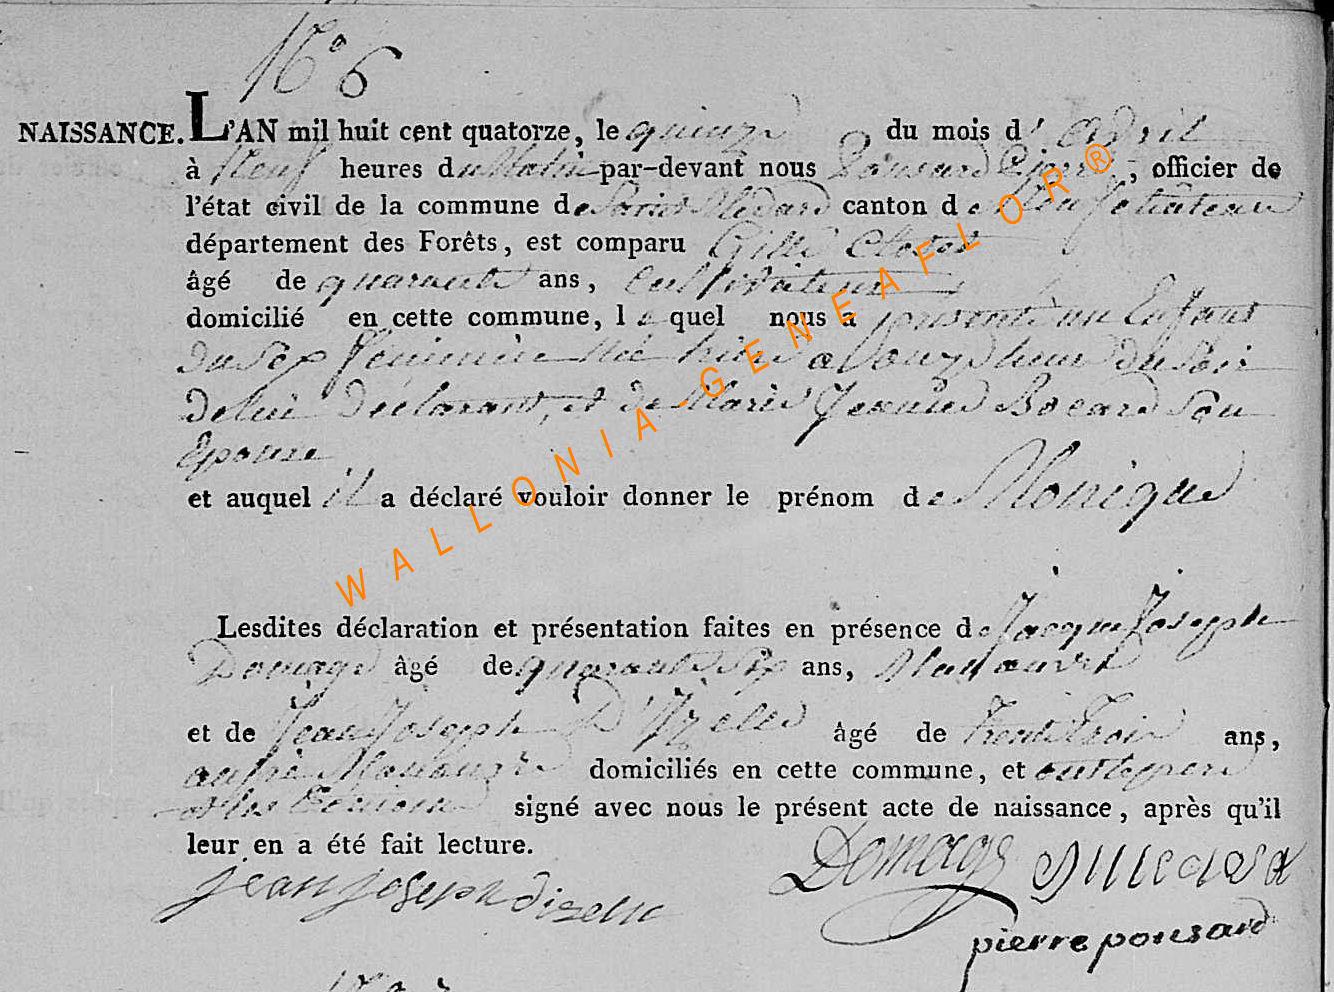 N° 6
NAISSANCE. L'AN mil huit cent quatorze, le quinze du mois d' avril
à Neuf heures du Matin par-devant nous Pousard Pierre, officier de
l'état civil de la commune de Saint Médard canton de Neufchateau
département des Forêts, est comparu Gille
âgé de quarante ans, Cultivateur
domicilié en cette commune, lequel nous a presenté un Enfant
du Sex feminin née hier a onze heur du Soir
de lui declarant, et de Marie Jeanne Bocard Son
Epouse
et auquel il a déclaré vouloir donner le prénom de Monique
Lesdites déclaration et présentation faites en présence de Jacque Joseph
Domage âgé de quarante Six ans,
et de Jean Joseph D'Izelle âgé de Trente Trois ans,
domiciliés en cette commune, et ont
signé avec nous le présent acte de naissance, après qu'il
leur en a été fait lecture.
jean joseph dizelle
Domage
pierre pousard
WALLONIA-GENEAFLOR®